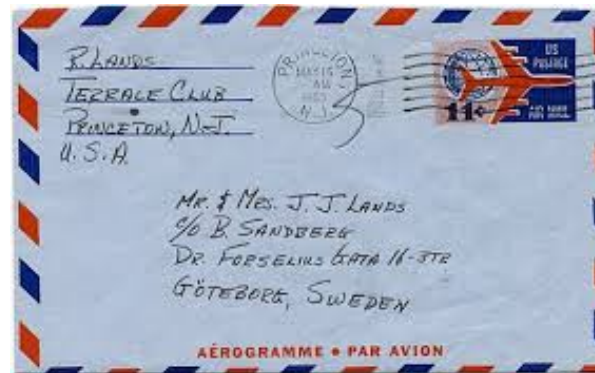 R. LANDS
TERRACE CLUB
PRINCETON, N.J.
U.S.A.
PRINCETON
N.J.
US
POSTAGE
11¢
MR. & MRS. J. J. LANDS
C/O B. SANDBERG
DR. FORSELIUS GATA 16-3TR
GÖTEBORG, SWEDEN
AÉROGRAMME • PAR AVION